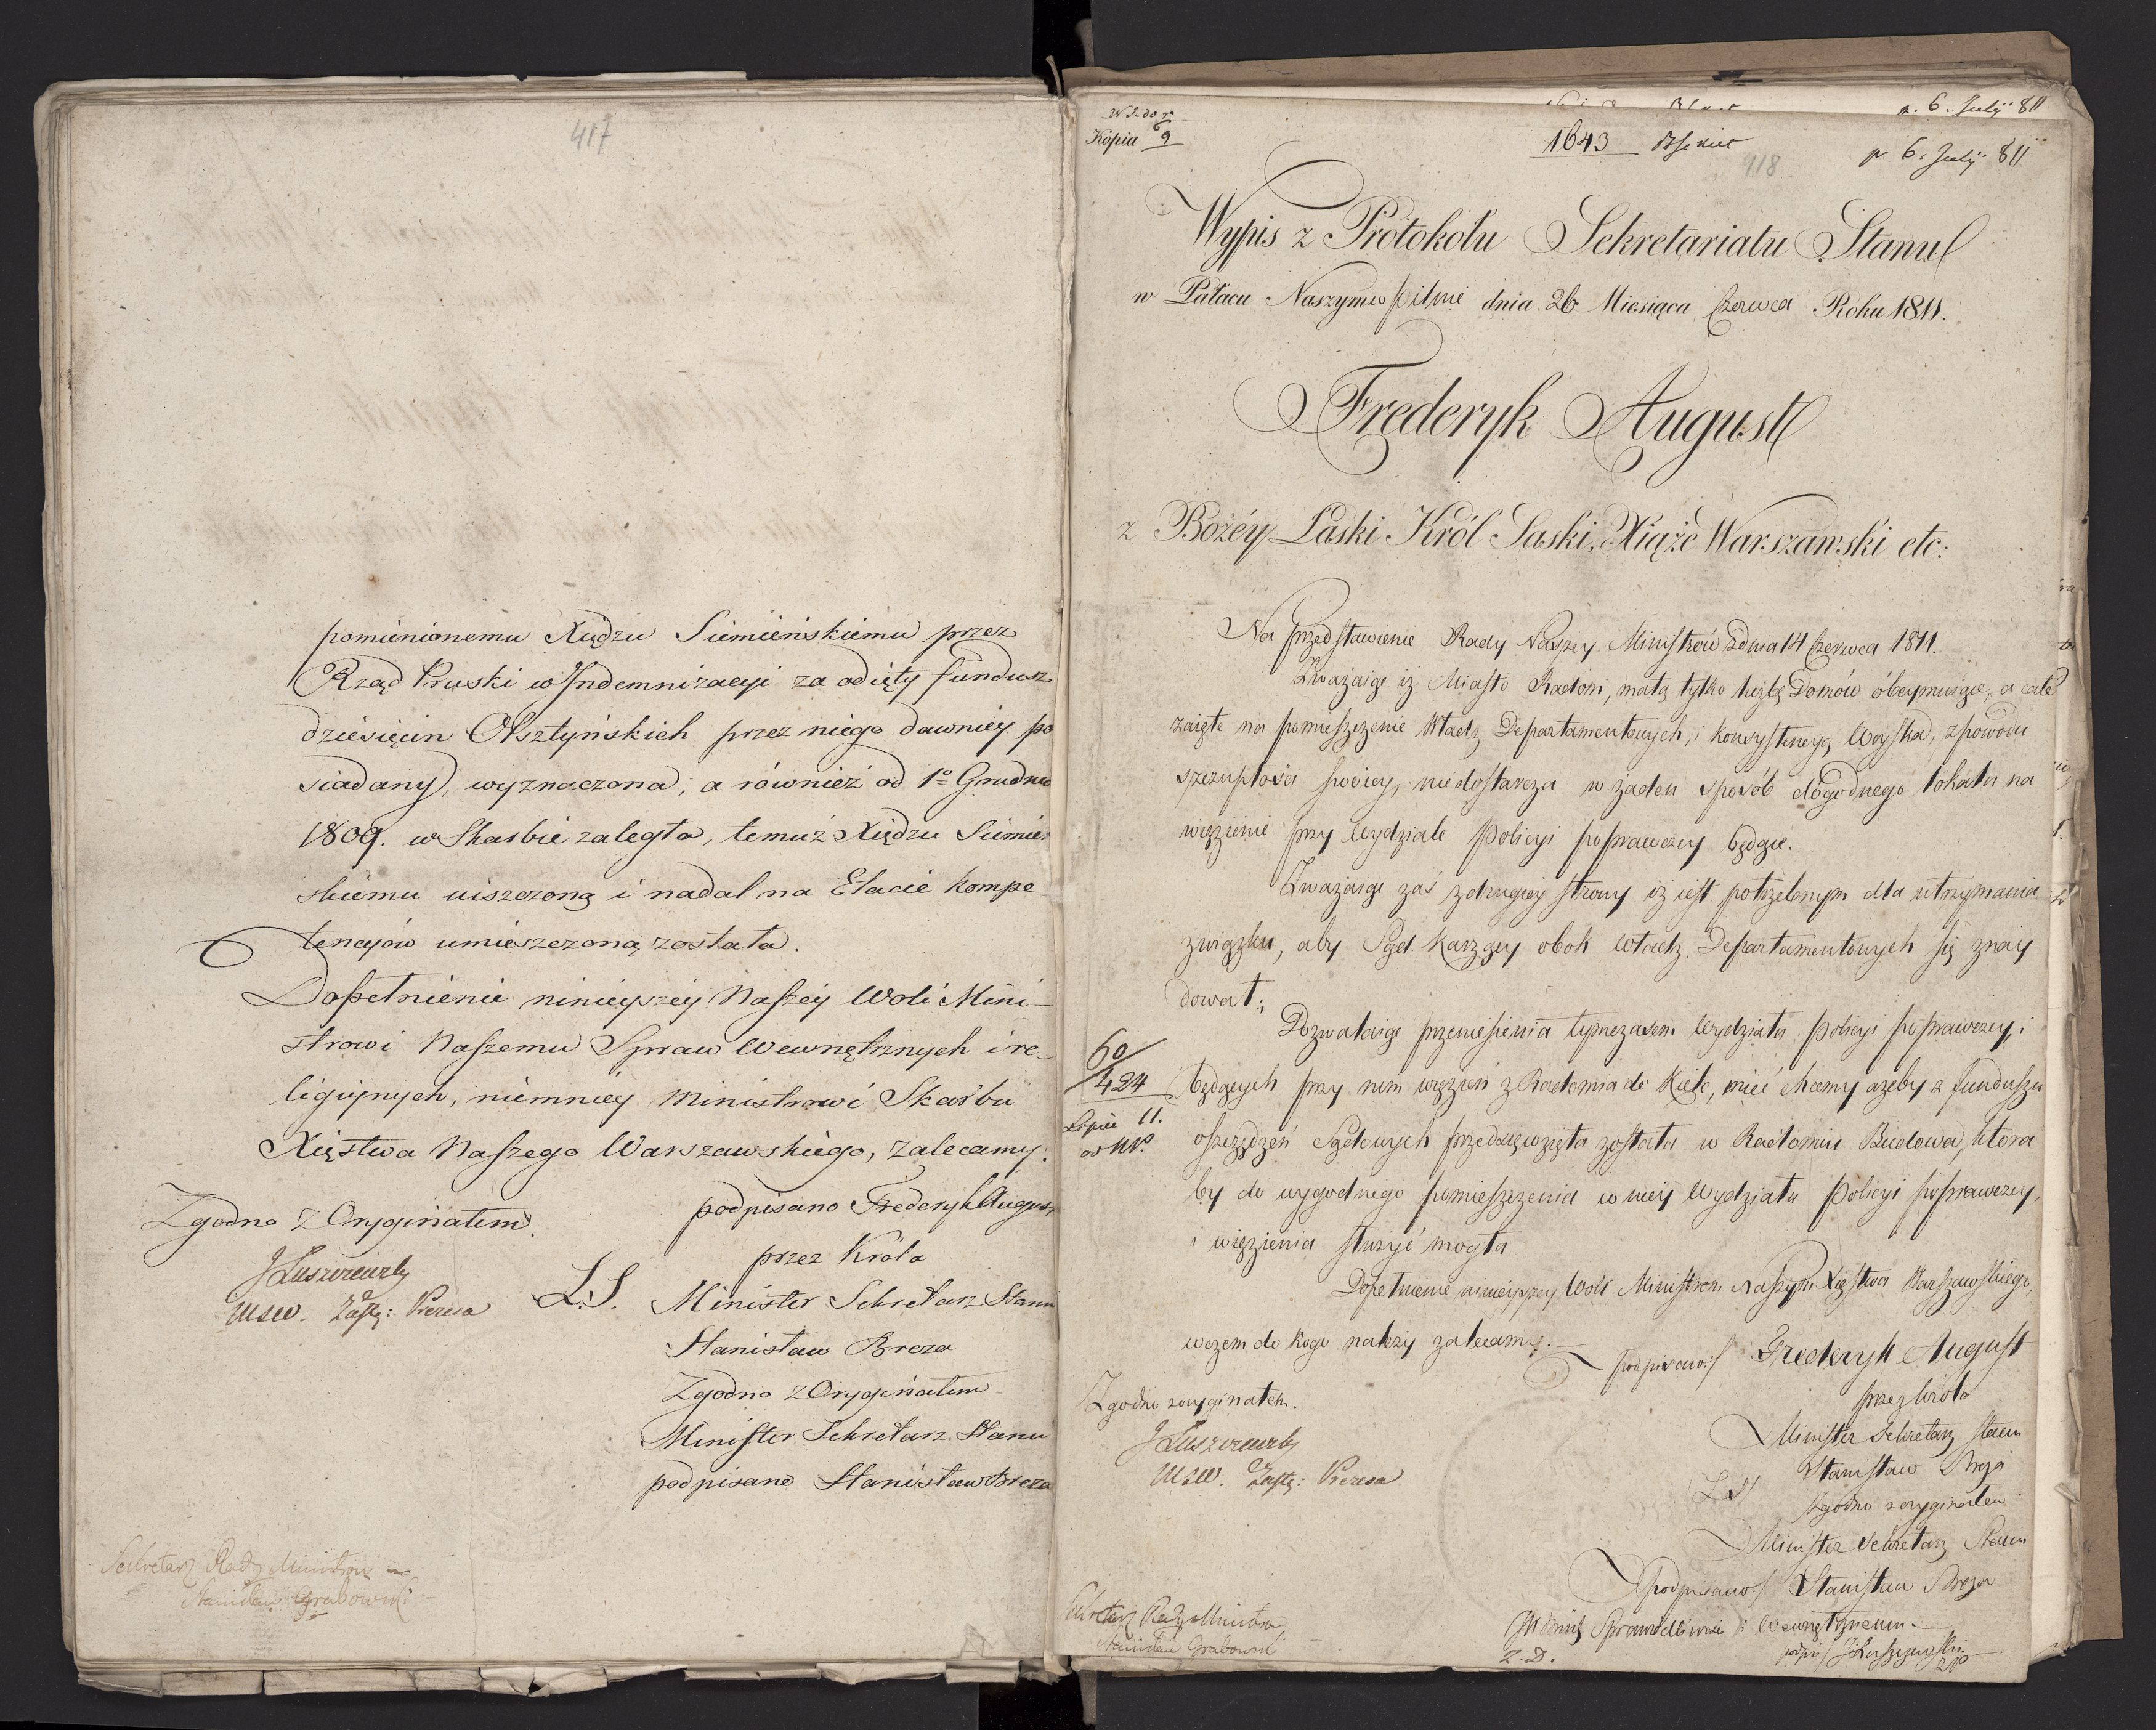 417
pomienionemu Xiędzu Siemieńskiemu przez
Rząd Pruski w Indemnizacyi za odięty fundusz
dziesięcin Olsztyńskich przez niego dawniey po
siadany, wyznaczona, a również od 1º Grudnia
1809. w Skarbie zaległa, temuż Xiędzu Siemień
skiemu uiszczoną i nadal na Etacie kompe-
tencyów umieszczoną została.
Dopełnienie ninieyszey Naszey Woli Mini-
strowi Naszemu Spraw Wewnętrznych i re-
ligiynych, niemniey Ministrowi Skarbu
Xięstwa Naszego Warszawskiego, zalecamy.
podpisano Frederyk August
Zgodno z Oryginałem.
przez Króla
J Łuszczewski
MSW. Zastę: Prezesa
L.S. Minister Sekretarz Stanu
Stanisław Breza
Zgodno z Oryginałem
Minister Sekretarz Stanu
podpisano Stanisław Breza
Sekretarz Rady Ministrów
Stanisław Grabowski
p. 6. Julij 811
Kopia 6/9
1643
418
p 6. Julij 811
Wypis z Protokółu Sekretariatu Stanu
w Pałacu Naszym w Pilnie dnia 26 Miesiąca Czerwca Roku 1811.
Frederyk August
z Bożéy Łaski Król Saski, Xiąże Warszawski etc:
Na przedstawienie Rady Naszey Ministrów z dnia 14 Czerwca 1811.
Zważaiąc iż Miasto Radom, małą tylko liczbę Domów obeymuiąc, a całe
zaięte na pomieszczenie Władz Departamentowych, i konsystencyą Woyska, z powodu
szczupłości swoiey, niedostarcza w żaden sposób dogodnego lokalu na
więzienie przy Wydziale Policyi poprawczey będące.
Zważaiąc zaś z drugiey strony iż iest potrzebnym dla utrzymania
związku, aby Sąd karzący obok Władz Departamentowych się znay
dował;
Dozwalaiąc przeniesienia tymczasem Wydziału Policyi poprawczey, i
60/424
będących przy nim więzień z Radomia do Kielc, mieć chcemy ażeby z funduszu
Lipiec 11.
oszczędzeń Sądowych przedsięwzięta została w Radomiu Budowa, która
by do wygodnego pomieszczenia w niey Wydziału Policyi poprawczey,
i więzienia służyć mogła
Dopełnienie ninieyszey Woli Ministrom Naszym Xięstwa Warszawskiego,
wczem do kogo należy zalecamy.
podpisano:/ Frederyk August
przez Króla
Zgodno z oryginałem.
Minister Sekretarz Stanu
J Łuszczewski
MSW. Zastę: Prezesa
Stanisław Breza
L.S. Zgodno z oryginałem
Minister Sekretarz Stanu
podpisano:/ Stanisław Breza
Sekretarz Rady Ministrów
Stanisław Grabowski
JW Mins Sprawiedliwości i Wewnętrznemu
Z. D.
podpis / J Łuszczewski